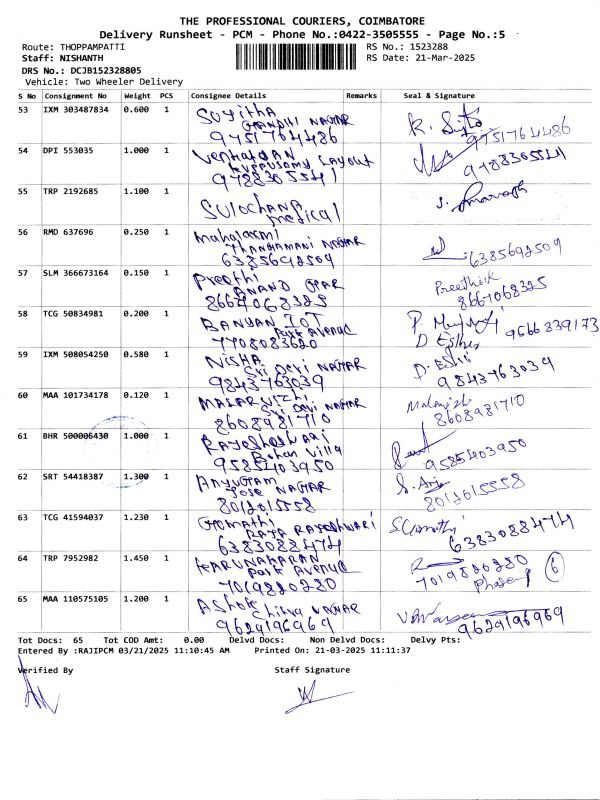 THE PROFESSIONAL COURIERS, COIMBATORE
Delivery Runsheet - PCM - Phone No.:0422-3505555 - Page No.:5
Route: THOPPAMPATTI RS No.: 1523288
Staff: NISHANTH RS Date: 21-Mar-2025
DRS No.: DCJB152328805
Vehicle: Two Wheeler Delivery
S No Consignment No Weight PCS Consignee Details Remarks Seal & Signature
53 IXM 303487834 0.600 1 Suvitha
GANDHI NAGAR
9751764486 9751764486
54 DPI 553035 1.000 1 Venkatesan
kuppusamy Layout
9788305541
55 TRP 2192685 1.100 1 Sulochana
medical
56 RMD 637696 0.250 1 Mahalaxmi
Thangamani NAGAR
6385692509 6385692509
57 SLM 366673164 0.150 1 Preethi Preethik
ANAND
8667068325 8667068325
58 TCG 50834981 0.200 1 BANYAN IOT
Park Avenue 9566839173
7708083620 D Esther
59 IXM 508054250 0.580 1 NISHA
Sri Devi NAGAR
9843763039 9843763039
60 MAA 101734178 0.120 1 MALARVIZHI
Sri Devi NAGAR
8608981710 8608981710
61 BHR 500006430 1.000 1 Rajeshwari
Rohan Villa
9585403950 9585403950
62 SRT 54418387 1.300 1
Jose NAGAR
8012015558 8012015558
63 TCG 41594037 1.230 1 Gomathi S.Gomathi
RAJA RAJESHWARI
6383088474 6383088474
64 TRP 7952982 1.450 1 KARUNAKARAN
Park Avenue 7019820280
7019820280 Phase-1 6
65 MAA 110575105 1.200 1 Ashok
Chinna
9629196969 9629196969
Tot Docs: 65 Tot COD Amt: 0.00 Delvd Docs: Non Delvd Docs: Delvy Pts:
Entered By :RAJIPCM 03/21/2025 11:10:45 AM Printed On: 21-03-2025 11:11:37
Verified By Staff Signature